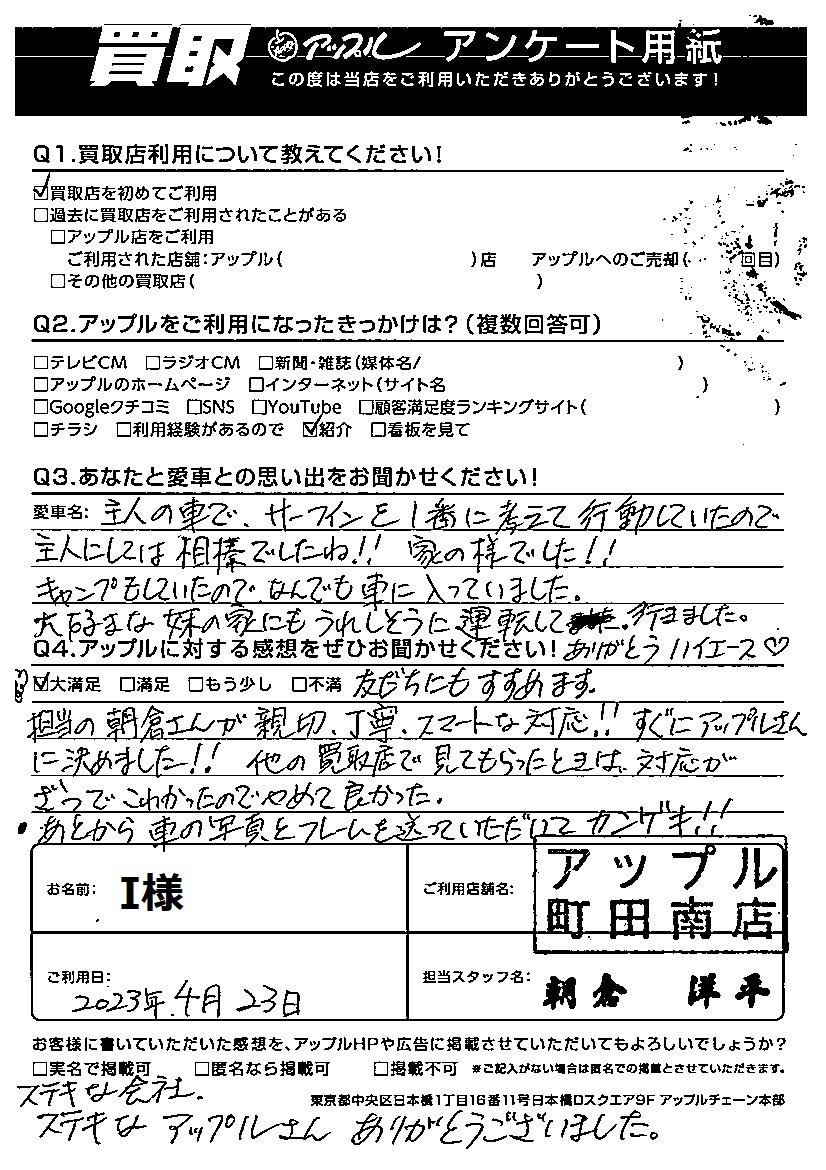 買取 アップル アンケート用紙
この度は当店をご利用いただきありがとうございます!
Q1.買取店利用について教えてください!
☑買取店を初めてご利用
□過去に買取店をご利用されたことがある
□アップル店をご利用
ご利用された店舗:アップル( )店 アップルへのご売却( 回目)
□その他の買取店( )
Q2.アップルをご利用になったきっかけは?(複数回答可)
□テレビCM □ラジオCM □新聞・雑誌(媒体名/ )
□アップルのホームページ □インターネット(サイト名 )
□Googleクチコミ □SNS □YouTube □顧客満足度ランキングサイト( )
□チラシ □利用経験があるので ☑紹介 □看板を見て
Q3.あなたと愛車との思い出をお聞かせください!
愛車名: 主人の車で、サーフィンを1番に考えて行動していたので
主人にしては相棒でしたね!! 家の様でした!!
キャンプもしていたので、なんでも車に入っていました。
大好きな妹の家にもうれしそうに運転して 行きました。
Q4.アップルに対する感想をぜひお聞かせください! ありがとうハイエース♡
☑大満足 □満足 □もう少し □不満 友だちにもすすめます。
担当の朝倉さんが親切、丁寧、スマートな対応!! すぐにアップルさん
に決めました!! 他の買取店で見てもらったときは、対応が
ざつでこわかったのでやめて良かった。
・あとから車の写真とフレームを送っていただいてカンゲキ!!
お名前: I様 ご利用店舗名: アップル
町田南店
ご利用日: 2023年4月23日 担当スタッフ名: 朝倉 洋平
お客様に書いていただいた感想を、アップルHPや広告に掲載させていただいてもよろしいでしょうか?
□実名で掲載可 □匿名なら掲載可 □掲載不可 ※ご記入がない場合は匿名での掲載とさせていただきます。
ステキな会社。
東京都中央区日本橋1丁目16番11号日本橋ロスクエア9F アップルチェーン本部
ステキなアップルさんありがとうございました。